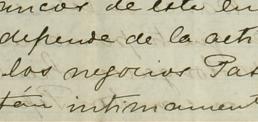 uncos de este en
depende de la acti
los negocios Pas
tán intimament